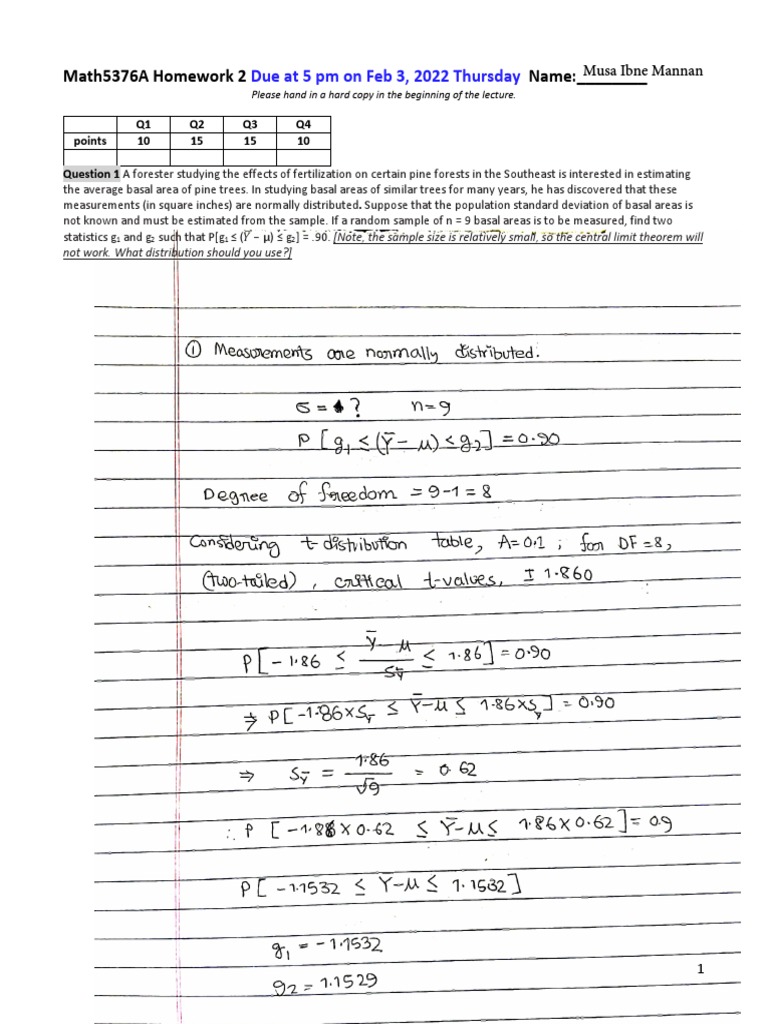 Math5376A Homework 2 Due at 5 pm on Feb 3, 2022 Thursday Name: Musa Ibne Mannan
Please hand in a hard copy in the beginning of the lecture.
Q1 Q2 Q3 Q4
points 10 15 15 10
Question 1 A forester studying the effects of fertilization on certain pine forests in the Southeast is interested in estimating
the average basal area of pine trees. In studying basal areas of similar trees for many years, he has discovered that these
measurements (in square inches) are normally distributed. Suppose that the population standard deviation of basal areas is
not known and must be estimated from the sample. If a random sample of n = 9 basal areas is to be measured, find two
statistics g₁ and g₂ such that P[g₁ ≤ (Ȳ − μ) ≤ g₂] = .90. [Note, the sample size is relatively small, so the central limit theorem will
not work. What distribution should you use?]
① Measurements are normally distributed.
σ = ? n=9
P [g₁ ≤ (Ȳ − μ) ≤ g₂] = 0.90
Degree of freedom = 9-1 = 8
Considering t-distribution table, A=0.1 ; for DF=8,
(two-tailed), critical t-values, ± 1.860
P[-1.86 ≤ (Ȳ − μ)/S_Ȳ ≤ 1.86] = 0.90
⇒ P[-1.86×S_Ȳ ≤ Ȳ−μ ≤ 1.86×S_Ȳ] = 0.90
⇒ S_Ȳ = 1.86/√9 = 0.62
∴ P [-1.86 × 0.62 ≤ Ȳ−μ ≤ 1.86 × 0.62] = 0.9
P[-1.1532 ≤ Y−μ ≤ 1.1532]
g₁ = -1.1532
g₂ = 1.1529
1